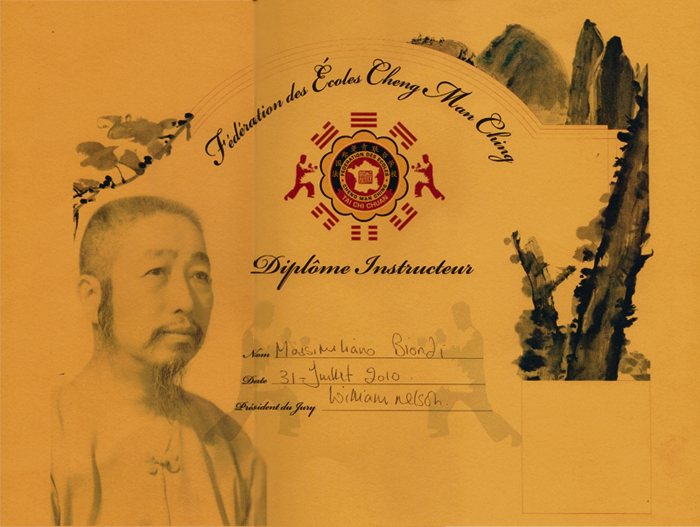 Fédération des Écoles Cheng Man Ching
FÉDÉRATION DES ÉCOLES
CHENG MAN CHING
TAI CHI CHUAN
Diplôme Instructeur
Nom Massimeliano Biondi
Date 31-Juillet 2010.
Président du Jury William nelson.